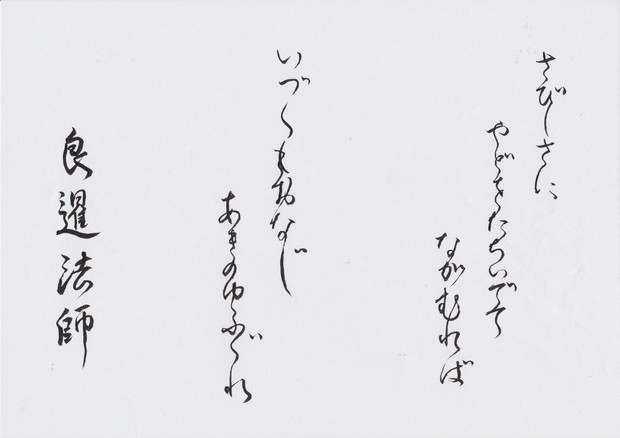 さびしさに
やどをたちいでて
ながむれば
いづくもおなじ
あきのゆふぐれ
良暹法師